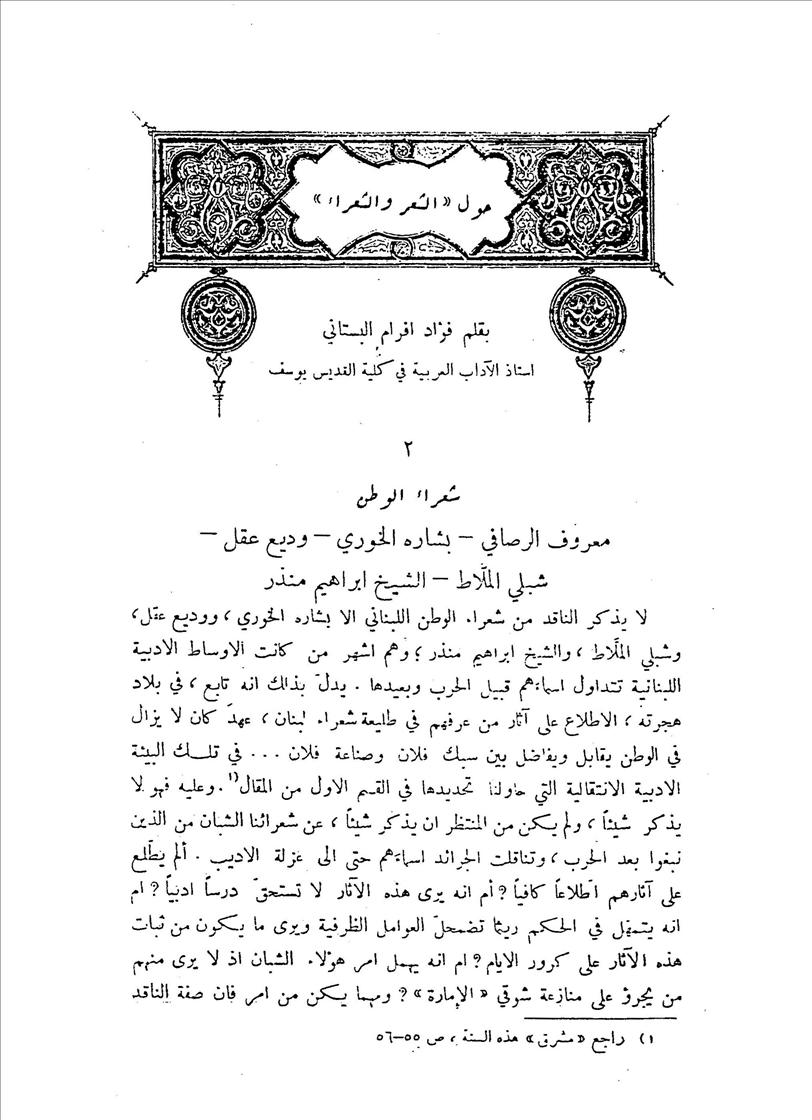 حول «الشعر والشعراء»
بقلم فؤاد افرام البستاني
استاذ الآداب العربية في كلية القديس يوسف
٢
شعراء الوطن
معروف الرصافي – بشاره الخوري – وديع عقل –
شبلي الملّاط – الشيخ ابراهيم منذر
لا يذكر الناقد من شعراء الوطن اللبناني الا بشاره الخوري، ووديع عقل،
وشبلي الملَّاط، والشيخ ابراهيم منذر؛ وهم اشهر من كانت الاوساط الادبية
اللبنانية تتداول اسماءَهم قبيل الحرب وبعيدها. يدلّ بذلك انه تابع، في بلاد
هجرته، الاطلاع على آثار من عرفهم في طليعة شعراء لبنان، عهدَ كان لا يزال
في الوطن يقابل ويفاضل بين سبك فلان وصناعة فلان ... في تلك البيئة
الادبية الانتقالية التي حاولنا تحديدها في القسم الاول من المقال(١. وعليه فهو لا
يذكر شيئاً، ولم يكن من المنتظر ان يذكر شيئاً، عن شعرائنا الشبان من الذين
نبغوا بعد الحرب، وتناقلت الجرائد اسماءَهم حتى الى عزلة الاديب. ألم يطّلع
على آثارهم اطلاعاً كافياً؟ أم انه يرى هذه الآثار لا تستحقّ درساً ادبياً؟ ام
انه يتمهّل في الحكم ريثما تضمحلّ العوامل الظرفية ويرى ما يكون من ثبات
هذه الآثار على كرور الايام؟ ام انه يهمل امر هؤلاء الشبان اذ لا يرى منهم
من يجرؤ على منازعة شوقي «الإمارة»؟ ومهما يكن من امر فان صفة الناقد
١) راجع «مشرق» هذه السنة، ص ٥٥–٥٦